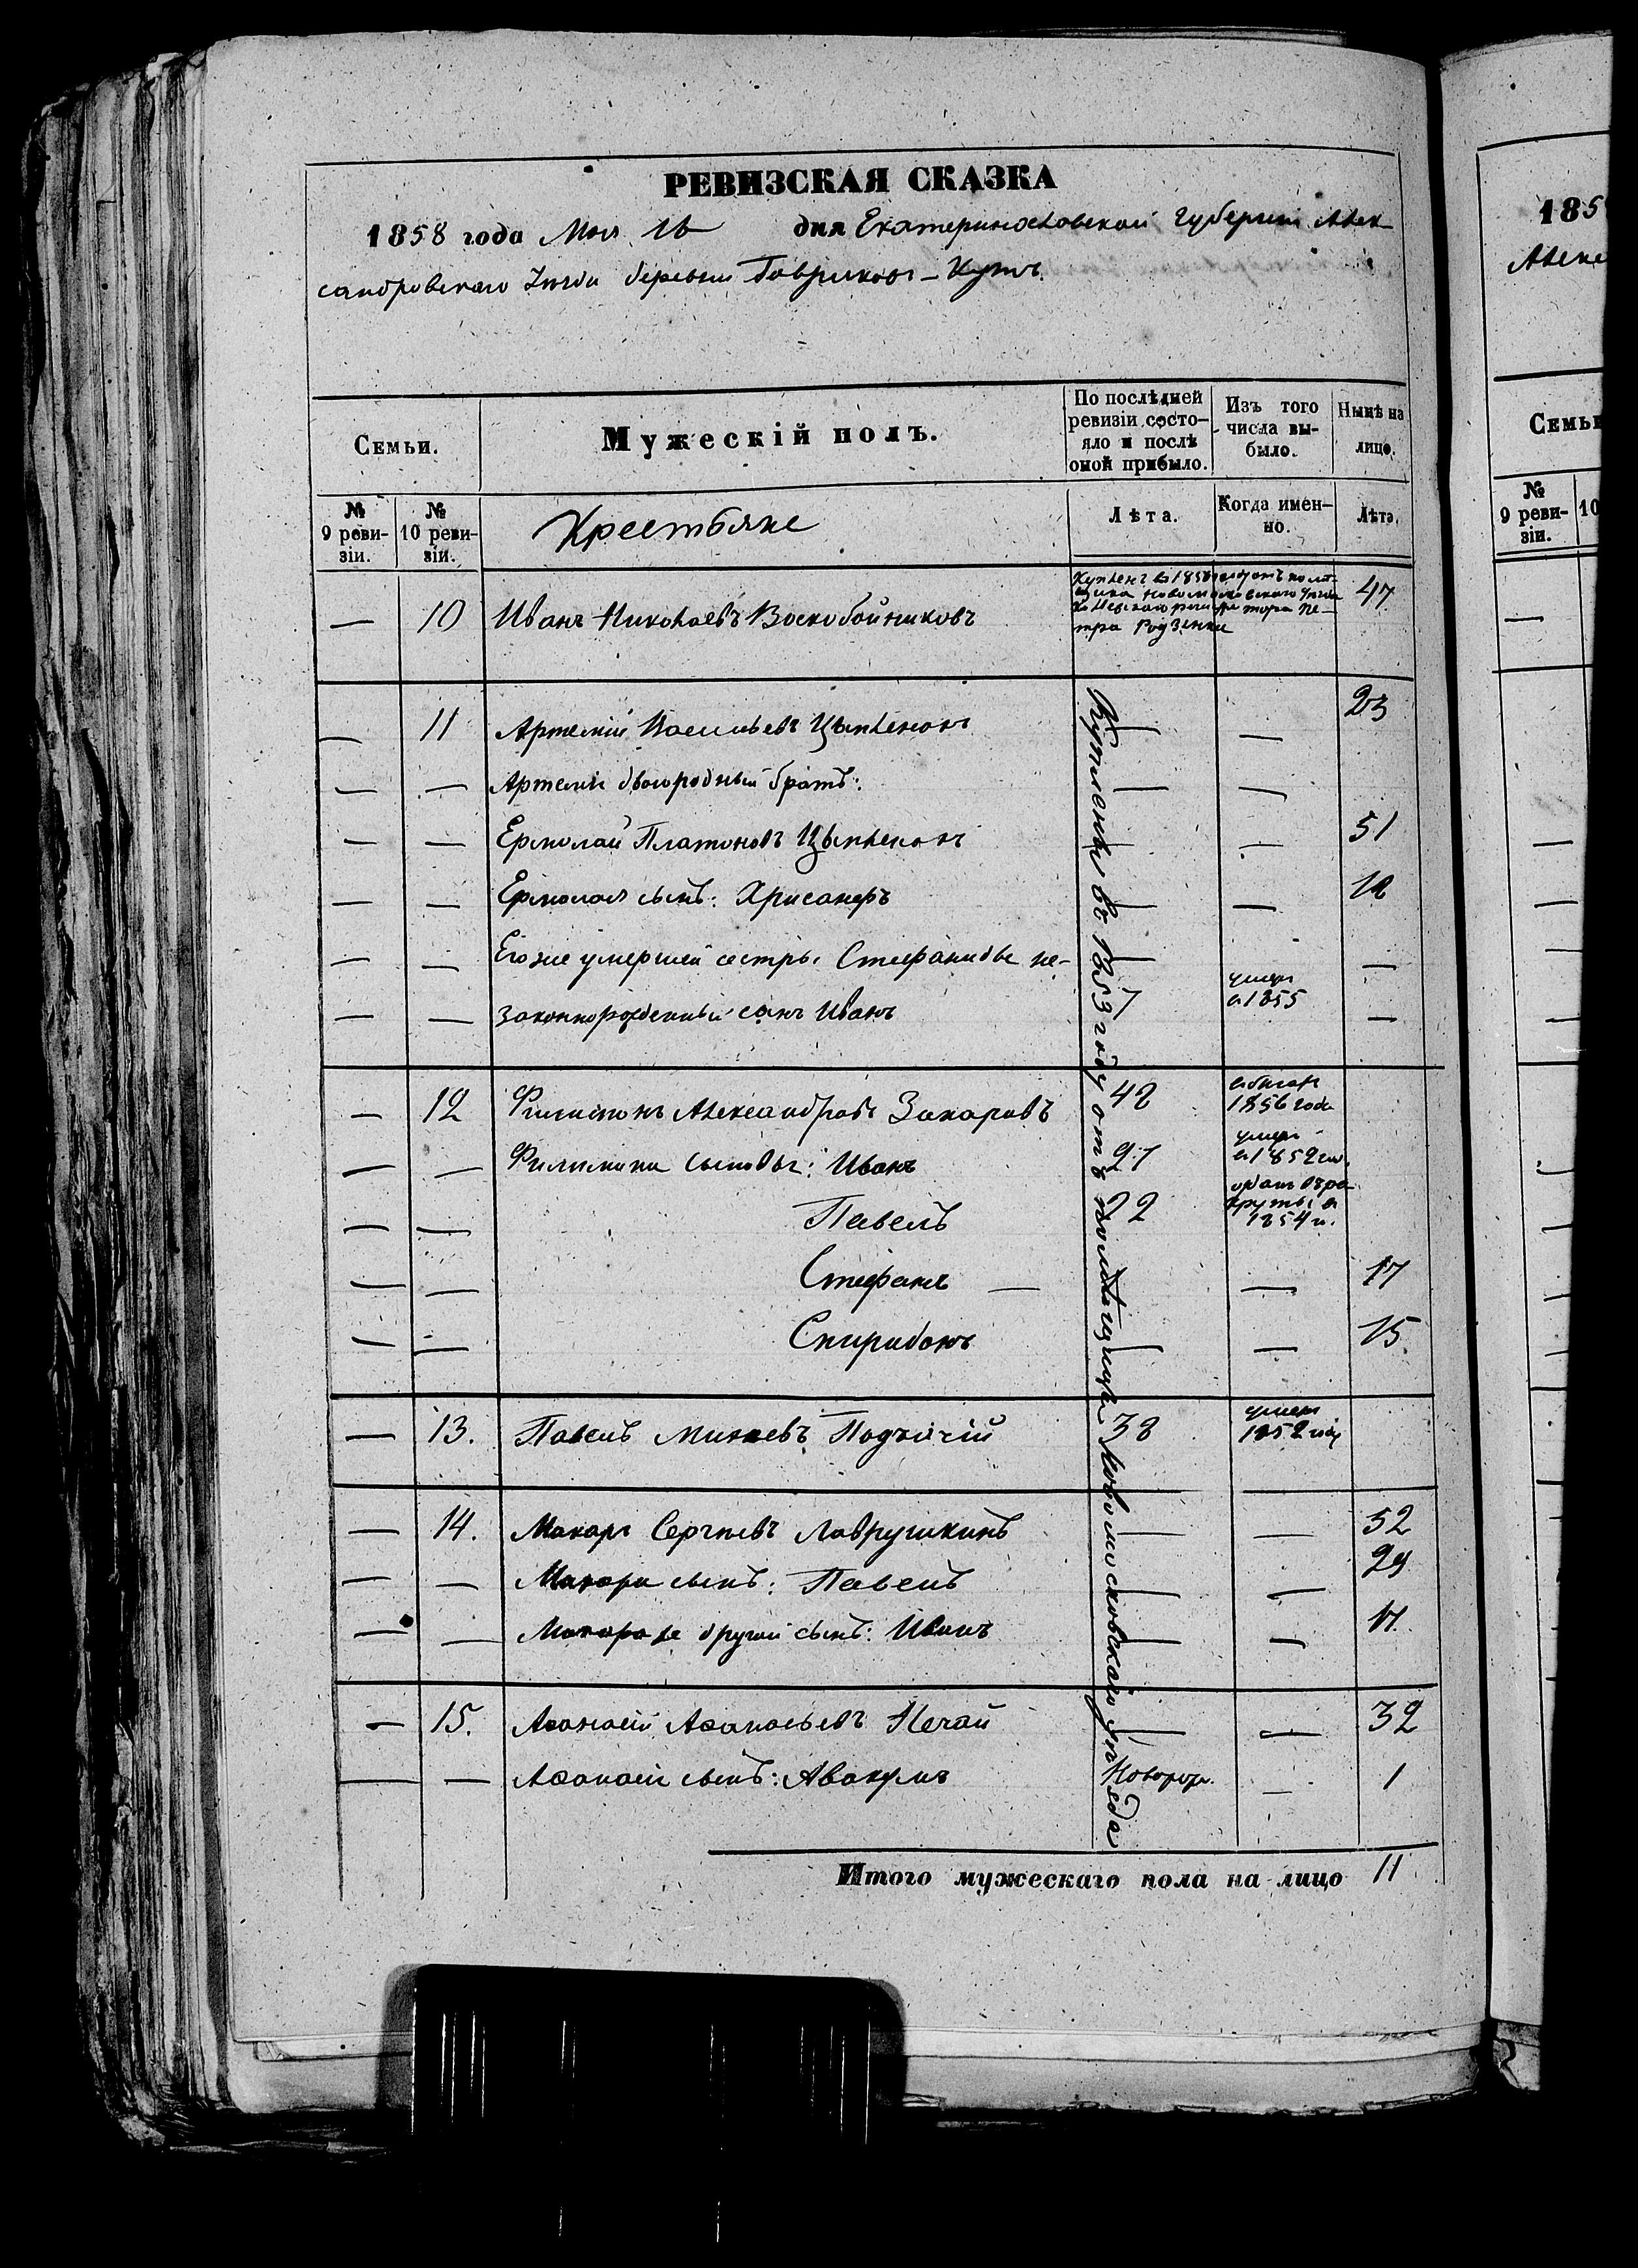 РЕВИЗСКАЯ СКАЗКА
1858 года Мая 16 дня Екатеринославской Губернии Алек-
сандровскаго Уезда деревни Гавриковъ-Кутъ
Семьи.
Мужескій полъ.
По послѣдней
ревизіи состо-
яло и послѣ
оной прибыло.
Изъ того
числа вы-
было.
Нынѣ на
лицо.
№
9 реви-
зіи.
№
10 реви-
зіи.
Крестьяне
Лѣта.
Когда имен-
но.
Лѣта.
— 10 Иванъ Николаевъ Воскобойниковъ 47
Купленъ въ 185 отъ поме-
щика Новомосковскаго Уезда
Коллежскаго регистратора Пе-
тра Родзенки
Куплены въ 1853 году отъ помѣщицы Новомосковскаго уѣзда
— 11 Артемій Васильевъ Цыпленокъ — — 23
— — Артемія двоюродный братъ: — —
— — Ермолай Платоновъ Цыпленокъ — — 51
— — Ермолая сынъ: Хрисанфъ — — 12
— — Его же умершей сестры Стефаниды не- — —
— — законнорожденный сынъ Иванъ 7 умеръ —
в 1855
— 12 Филимонъ Александровъ Захаровъ 42
1856 года
— — Филимона сыновья: Иванъ 27 умеръ
в 1852 го.
— — Павелъ 22 отданъ въ ре-
круты в
1854 г.
— — Стефанъ — — 17
— — Спиридонъ — — 15.
— 13. Павелъ Минаевъ Подчій 38 умеръ
1852 году
— 14. Макаръ Сергѣевъ Лаврушкинъ — — 52
— — Макара сынъ: Павелъ — — 29
— — Макара же другой сынъ: Иванъ — — 17.
— 15. Афанасій Афанасьевъ Нечай — — 32
— — Афанасія сынъ: Авакумъ Новорож. — 1
Итого мужескаго пола на лицо 11
185
Алекс
Семьи
№
9 реви-
зіи.
10